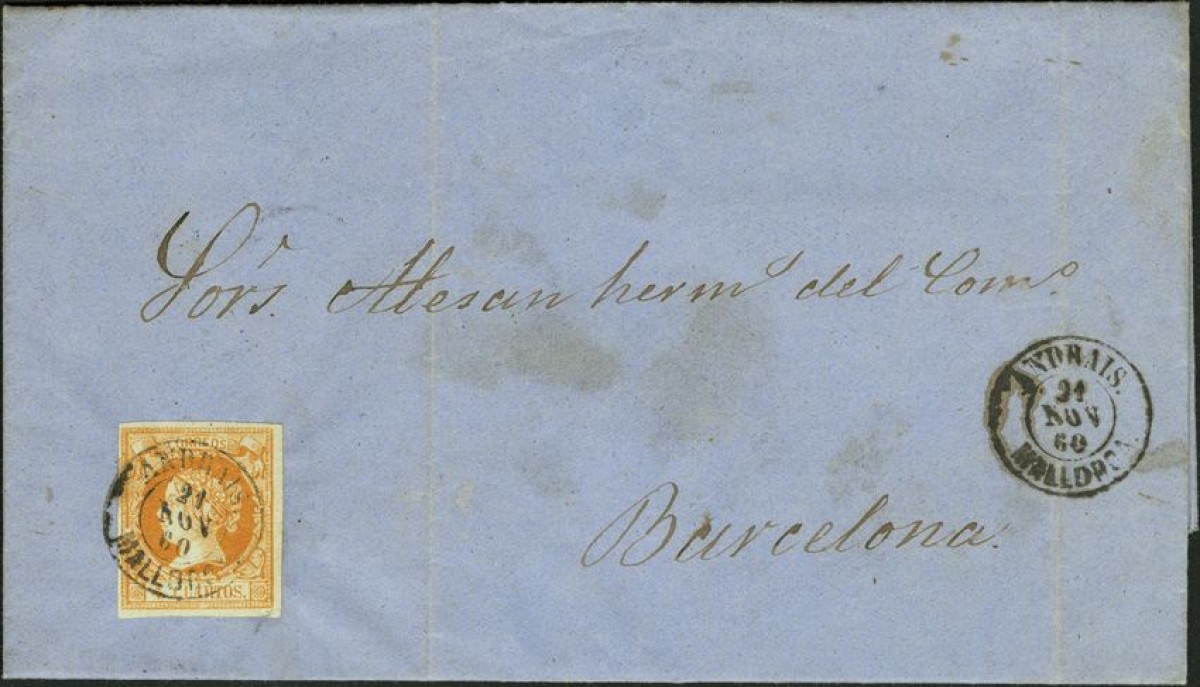 Sors. Alesan hermº del Comº
Barcelona.
ANDRAIS.
21
NOV
60
MALLORCA.
CORREOS
ANDRAIS
21
NOV
60
MALLORCA
CUARTOS.